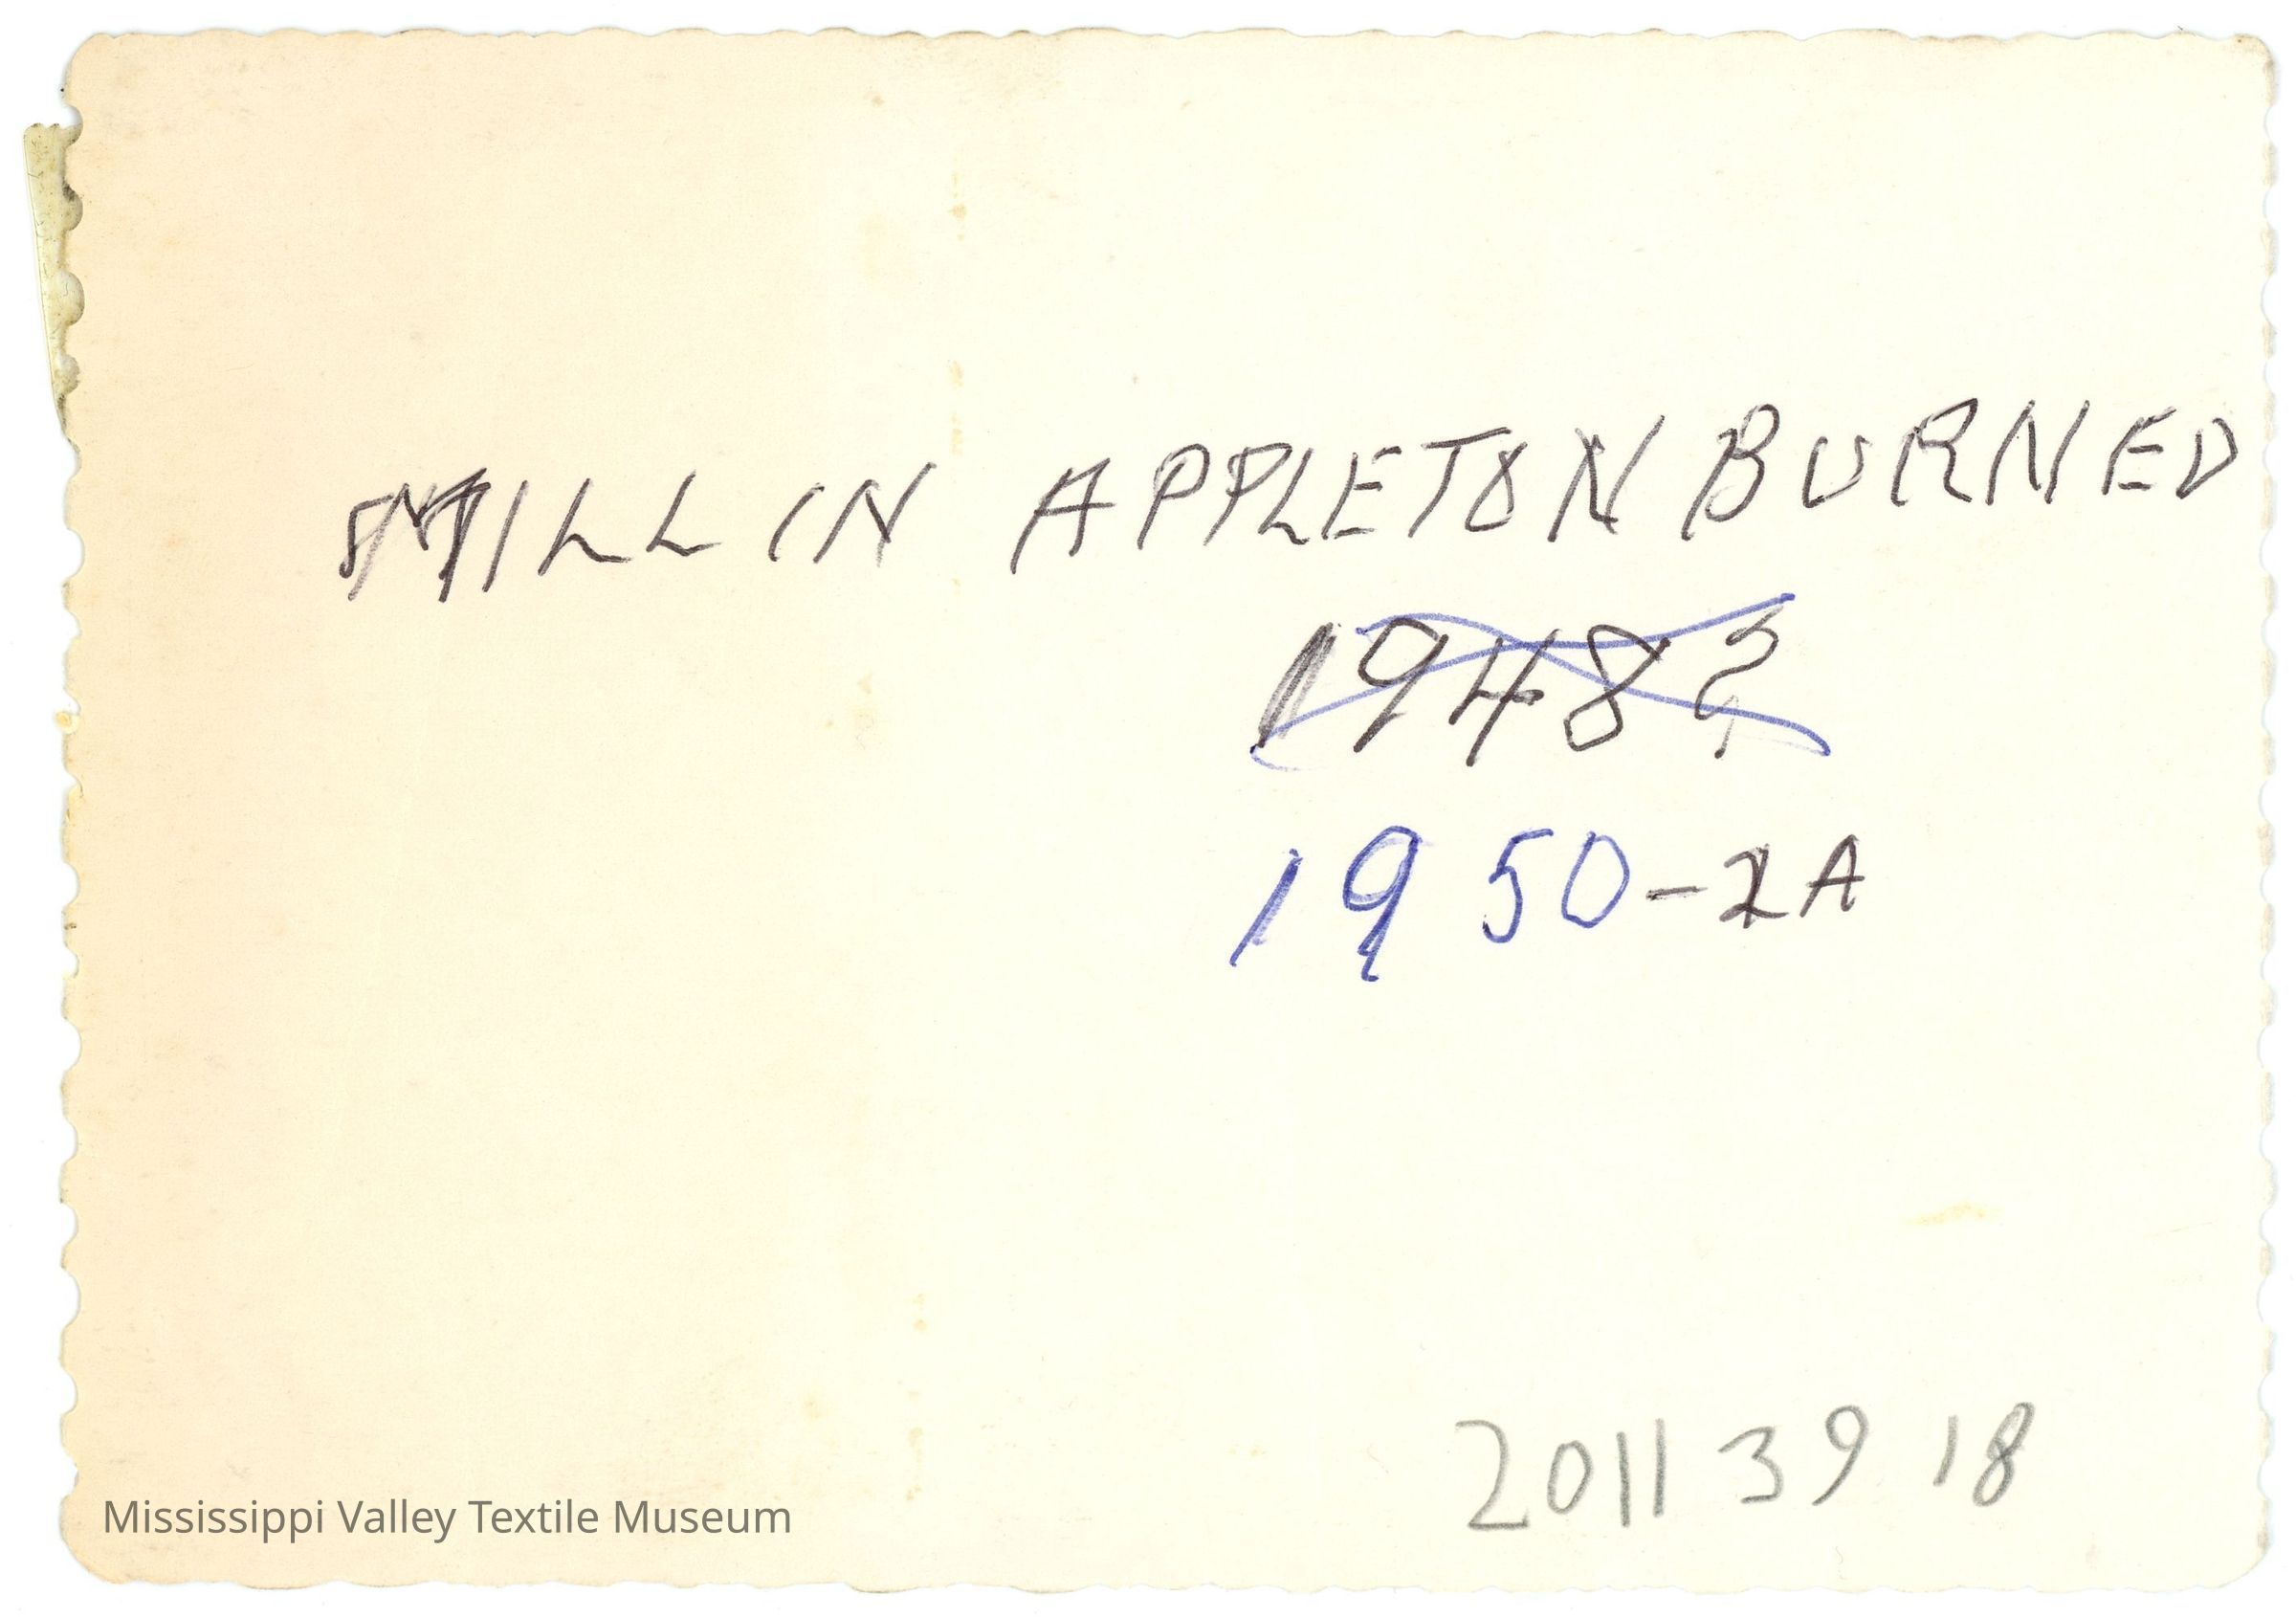 MILL IN APPLETON BURNED
1948?
1950-2A
2011 39 18
Mississippi Valley Textile Museum